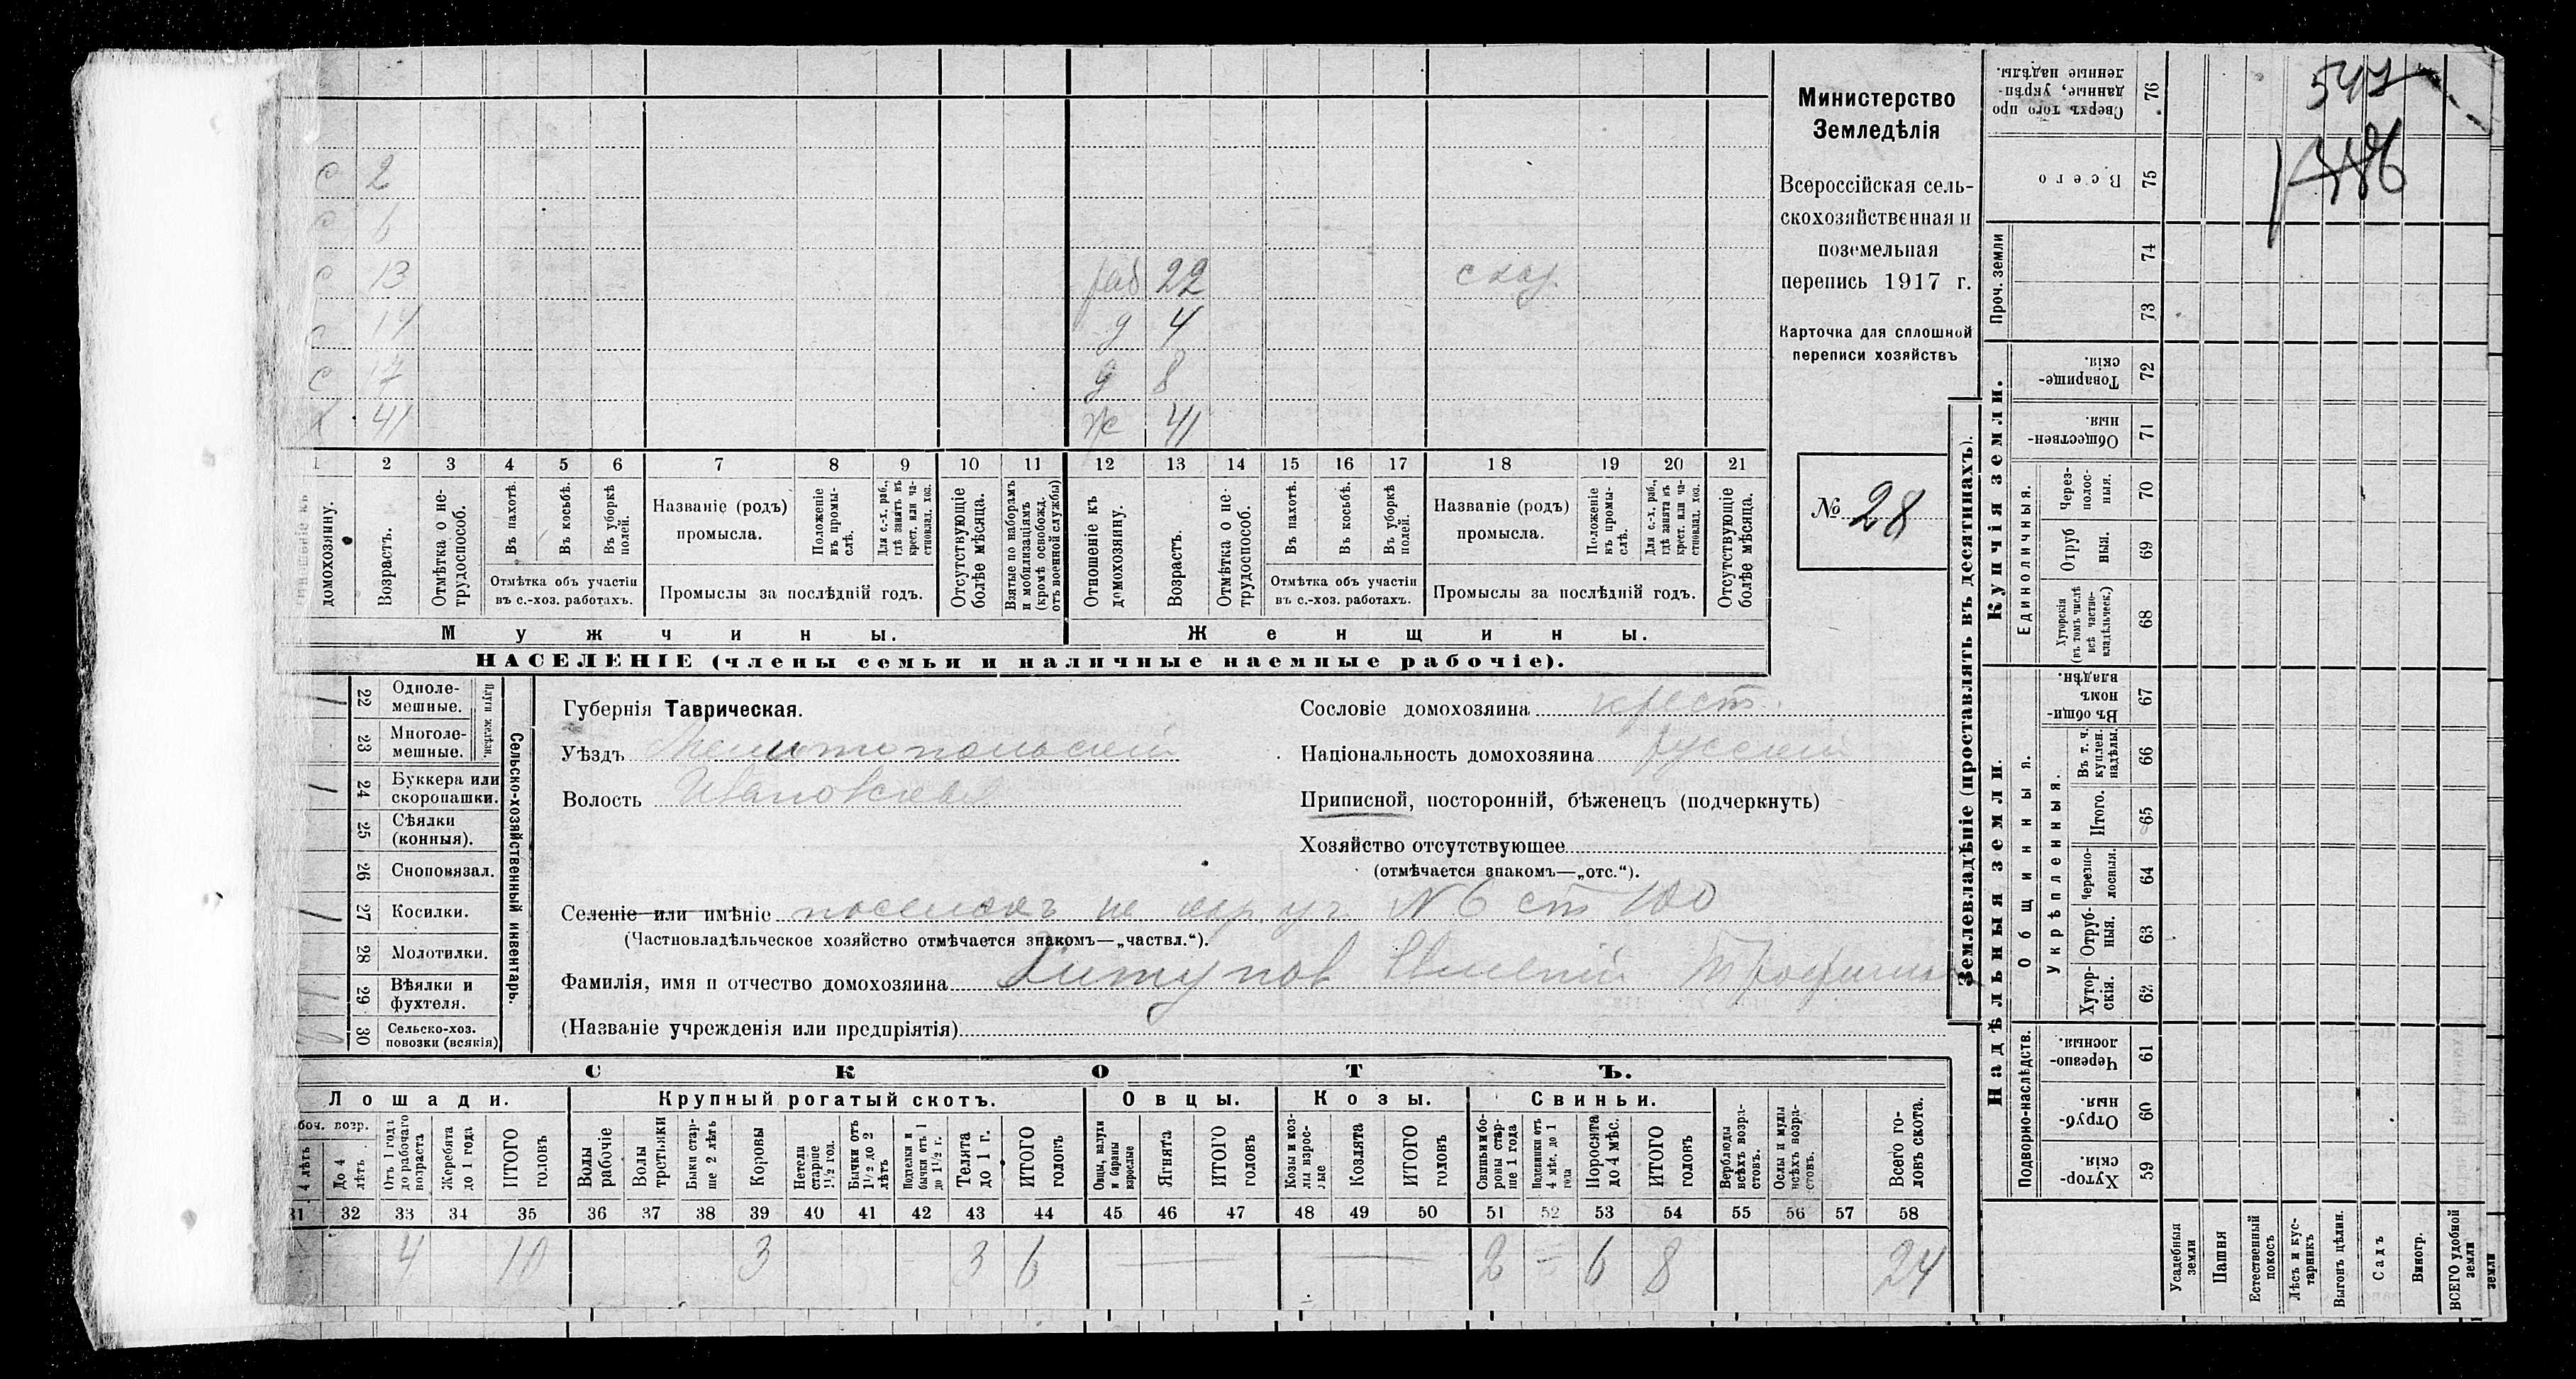 Министерство
Земледѣлія
Всероссійская сель-
скохозяйственная и
поземельная
перепись 1917 г.
Карточка для сплошной
переписи хозяйствъ
№ 28
547
с 2
с 6
с 13
14
с 17
х 41
раб 22
д 4
д 8
ж 41
1 2 3 4 5 6 7 8 9 10 11 12 13 14 15 16 17 18 19 20 21
домохозяину.
Возрастъ.
Отмѣтка о не-
трудоспособ.
Въ пахотѣ.
Въ косьбѣ.
Въ уборкѣ
полей.
Отмѣтка объ участіи
въ с.-хоз. работахъ.
Названіе (родъ)
промысла.
Положеніе
въ промы-
слѣ.
Для с.-х. раб.,
гдѣ занятъ въ
крест. или ча-
стновлад. хоз.
Промыслы за послѣдній годъ.
Отсутствующіе
болѣе мѣсяца.
Взятые по наборамъ
и мобилизаціямъ
(кромѣ освобожд.
отъ военной службы)
Отношеніе къ
домохозяину.
Возрастъ.
Отмѣтка о не-
трудоспособ.
Въ пахотѣ.
Въ косьбѣ.
Въ уборкѣ
полей.
Отмѣтка объ участіи
въ с.-хоз. работахъ.
Названіе (родъ)
промысла.
Положеніе
въ промы-
слѣ.
Для с.-х. раб.,
гдѣ занята въ
крест. или ча-
стновлад. хоз.
Промыслы за послѣдній годъ.
Отсутствующіе
болѣе мѣсяца.
Мужчины.
Женщины.
НАСЕЛЕНІЕ (члены семьи и наличные наемные рабочіе).
22 Одноле-
мешные.
23 Многоле-
мешные.
Плуги желѣзн.
24 Буккера или
скоропашки.
25 Сѣялки
(конныя).
26 Сноповязал.
27 Косилки.
28 Молотилки.
29 Вѣялки и
фухтеля.
30 Сельско-хоз.
повозки (всякія)
Сельско-хозяйственный инвентарь.
Губернія Таврическая.
Уѣздъ Мелитопольскій
Волость Ивановская
Сословіе домохозяина крест.
Національность домохозяина русскій
Приписной, посторонній, бѣженецъ (подчеркнуть)
Хозяйство отсутствующее
(отмѣчается знакомъ—„отс.“).
Селеніе или имѣніе поселокъ на N 6 ст 100
(Частновладѣльческое хозяйство отмѣчается знакомъ—„частвл.“).
Фамилія, имя и отчество домохозяина Хитуновъ Трофимов
(Названіе учрежденія или предпріятія)
СКОТЪ.
Лошади.
Крупный рогатый скотъ.
Овцы.
Козы.
Свиньи.
боч. возр.
4 лѣтъ
До 4
лѣтъ
Отъ 1 года
до рабочаго
возраста
Жеребята
до 1 года
ИТОГО
головъ
Волы
рабочіе
Волы
третьяки
Быки стар-
ше 2 лѣтъ
Коровы
Нетели
старше
1½ год.
Бычки отъ
1½ до 2
лѣтъ
Подтелки и
бычки отъ 1
до 1½ г.
Телята
до 1 г.
ИТОГО
головъ
Овцы, валухи
и бараны
взрослые
Ягнята
ИТОГО
головъ
Козы и коз-
лы взрос-
лые
Козлята
ИТОГО
головъ
Свиньи и бо-
ровы стар-
ше 1 года
Подсвинки отъ
4 мѣс. до 1
года
Поросята
до 4 мѣс.
ИТОГО
головъ
Верблюды
всѣхъ возра-
стовъ.
Ослы и мулы
всѣхъ возра-
стовъ.
Всего го-
ловъ скота.
31 32 33 34 35 36 37 38 39 40 41 42 43 44 45 46 47 48 49 50 51 52 53 54 55 56 57 58
4 10 3 3 6 — — 2 — 6 8 24
Землевладѣніе (проставлять въ десятинахъ).
Надѣльныя земли.
Купчія земли.
Проч. земли
Подворно-наслѣдств.
Общинныя.
Укрѣпленныя.
Единоличныя.
Сверхъ того про
данные, укрѣп-
ленные надѣлы.
76
Всего
75
74
73
Товарище-
скія.
72
Обществен-
ныя.
71
Через-
полос-
ныя.
70
Отруб
ныя.
69
Хуторскія
(въ томъ числѣ
всѣ частно-
владѣльческ.)
68
Въ общи-
номъ
владѣн.
67
Въ т. ч.
куплен.
надѣлы.
66
Итого.
65
Черезпо-
лосныя.
64
Отруб-
ныя.
63
Хутор-
скія.
62
Черезпо-
лосныя.
61
Отруб-
ныя.
60
Хутор-
скія.
59
Усадебныя
земли
Пашня
Естественный
покосъ
Лѣсъ и кус-
тарникъ
Выгонъ цѣлин.
Садъ
Виногр.
ВСЕГО удобной
земли
земли